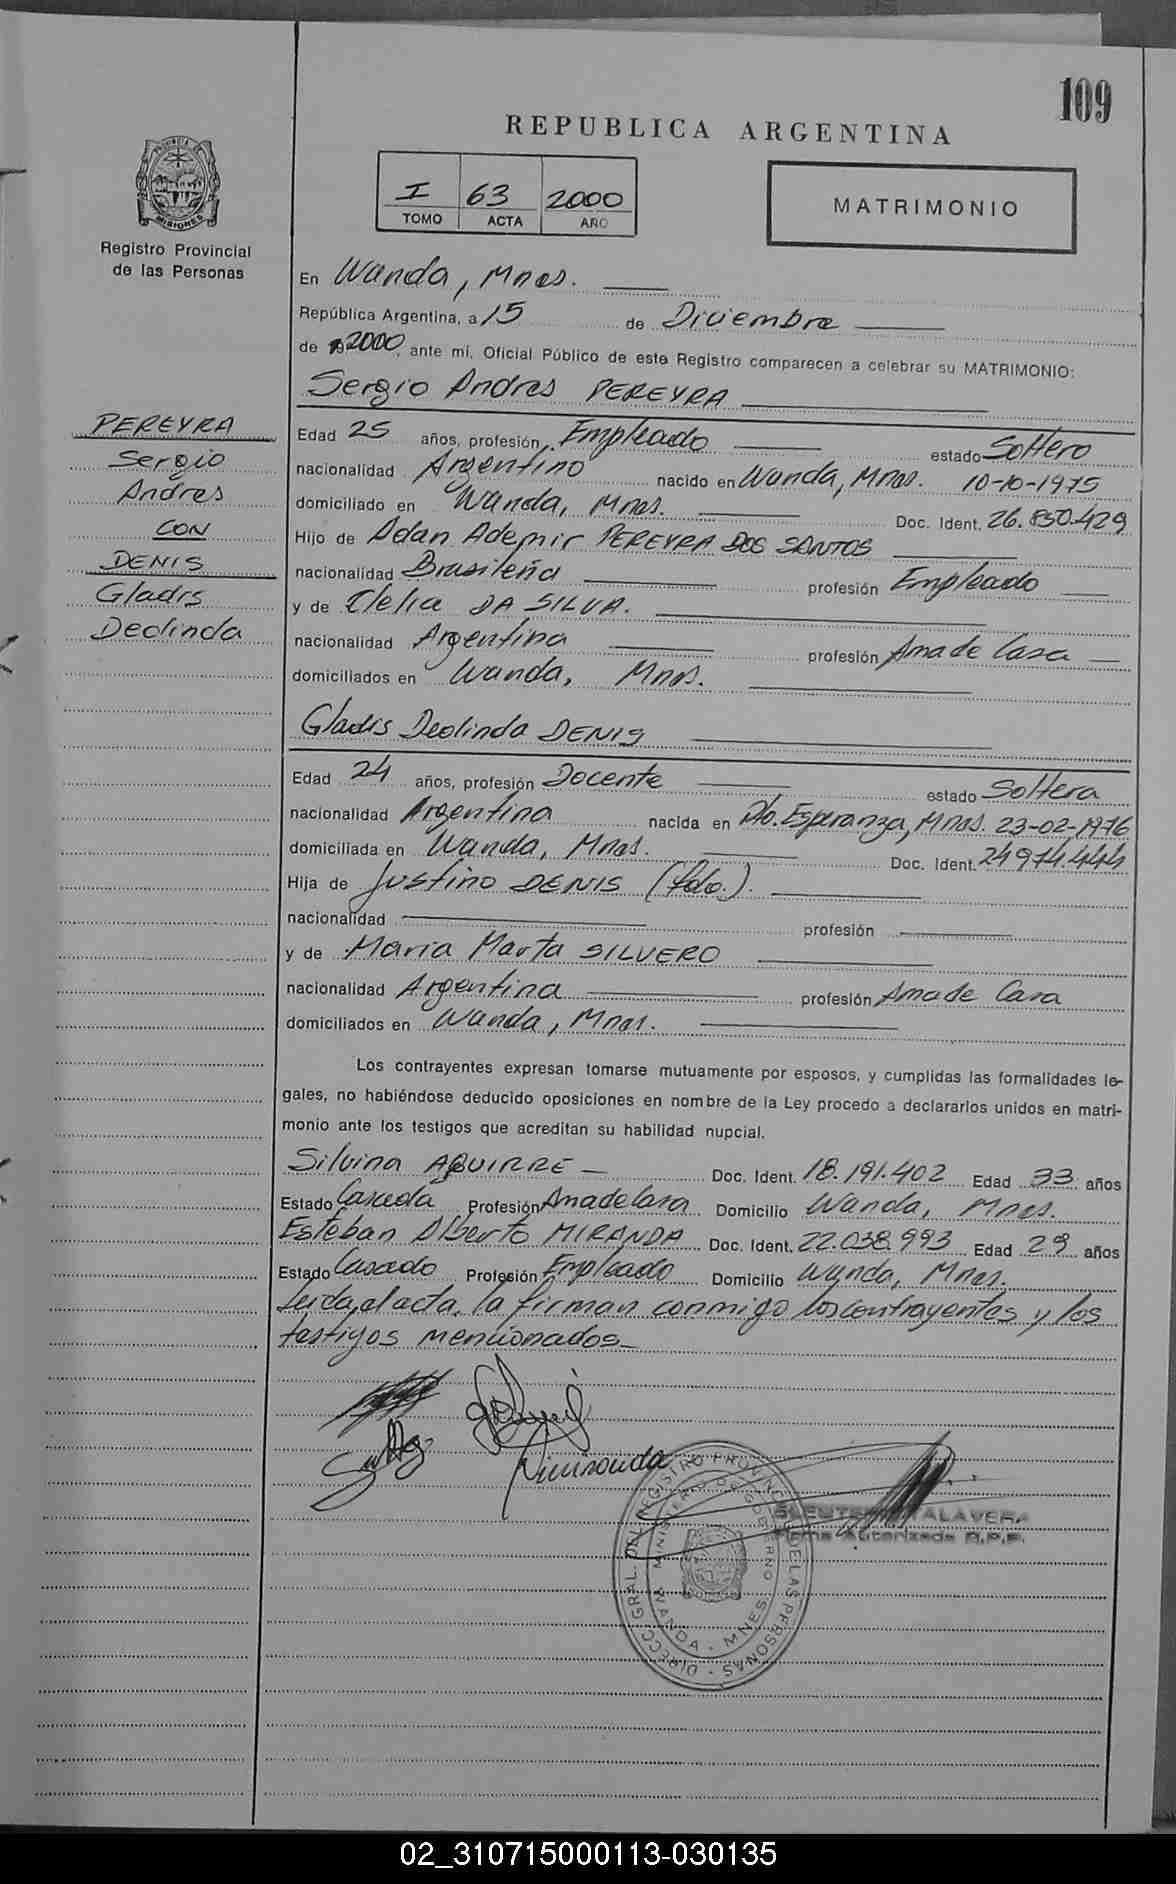 109
REPUBLICA ARGENTINA
PROVINCIA DE
MISIONES
Registro Provincial
de las Personas
I 63 2000
TOMO ACTA AÑO
MATRIMONIO
En Wanda, Mnes.
República Argentina, a 15 de Diciembre
de 2000, ante mí, Oficial Público de este Registro comparecen a celebrar su MATRIMONIO:
Sergio Andres PEREYRA
PEREYRA
Sergio
Andres
CON
DENIS
Gladis
Deolinda
Edad 25 años, profesión, Empleado estado Soltero
nacionalidad Argentino nacido en Wanda, Mnes. 10-10-1975
domiciliado en Wanda, Mnes. Doc. Ident. 26.850.429
Hijo de Adan Ademir PEREYRA DOS SANTOS
nacionalidad Brasileña profesión Empleado
y de Clelia DA SILVA.
nacionalidad Argentina profesión Ama de Casa
domiciliados en Wanda, Mnes.
Gladis Deolinda DENIS
Edad 24 años, profesión Docente estado Soltera
nacionalidad Argentina nacida en Pto. Esperanza, Mnes. 23-02-1976
domiciliada en Wanda, Mnes. Doc. Ident. 24.974.444
Hija de Justino DENIS (fdo.).
nacionalidad profesión
y de Maria Marta SILVERO
nacionalidad Argentina profesión Ama de Casa
domiciliados en Wanda, Mnes.
Los contrayentes expresan tomarse mutuamente por esposos, y cumplidas las formalidades le-
gales, no habiéndose deducido oposiciones en nombre de la Ley procedo a declararlos unidos en matri-
monio ante los testigos que acreditan su habilidad nupcial.
Silvina AGUIRRE Doc. Ident. 18.191.402 Edad 33 años
Estado Casada Profesión Ama de Casa Domicilio Wanda, Mnes.
Esteban Alberto MIRANDA Doc. Ident. 22.038.993 Edad 29 años
Estado Casado Profesión Empleado Domicilio Wanda, Mnes.
Leida el acta, la firman conmigo los contrayentes y los
testigos mencionados
TALAVERA
Firma Autorizada R.P.P.
DIRECC. GRAL. DEL REGISTRO PROVINCIAL DE LAS PERSONAS
MINISTERIO DE GOBIERNO
WANDA - MNES.
02_310715000113-030135